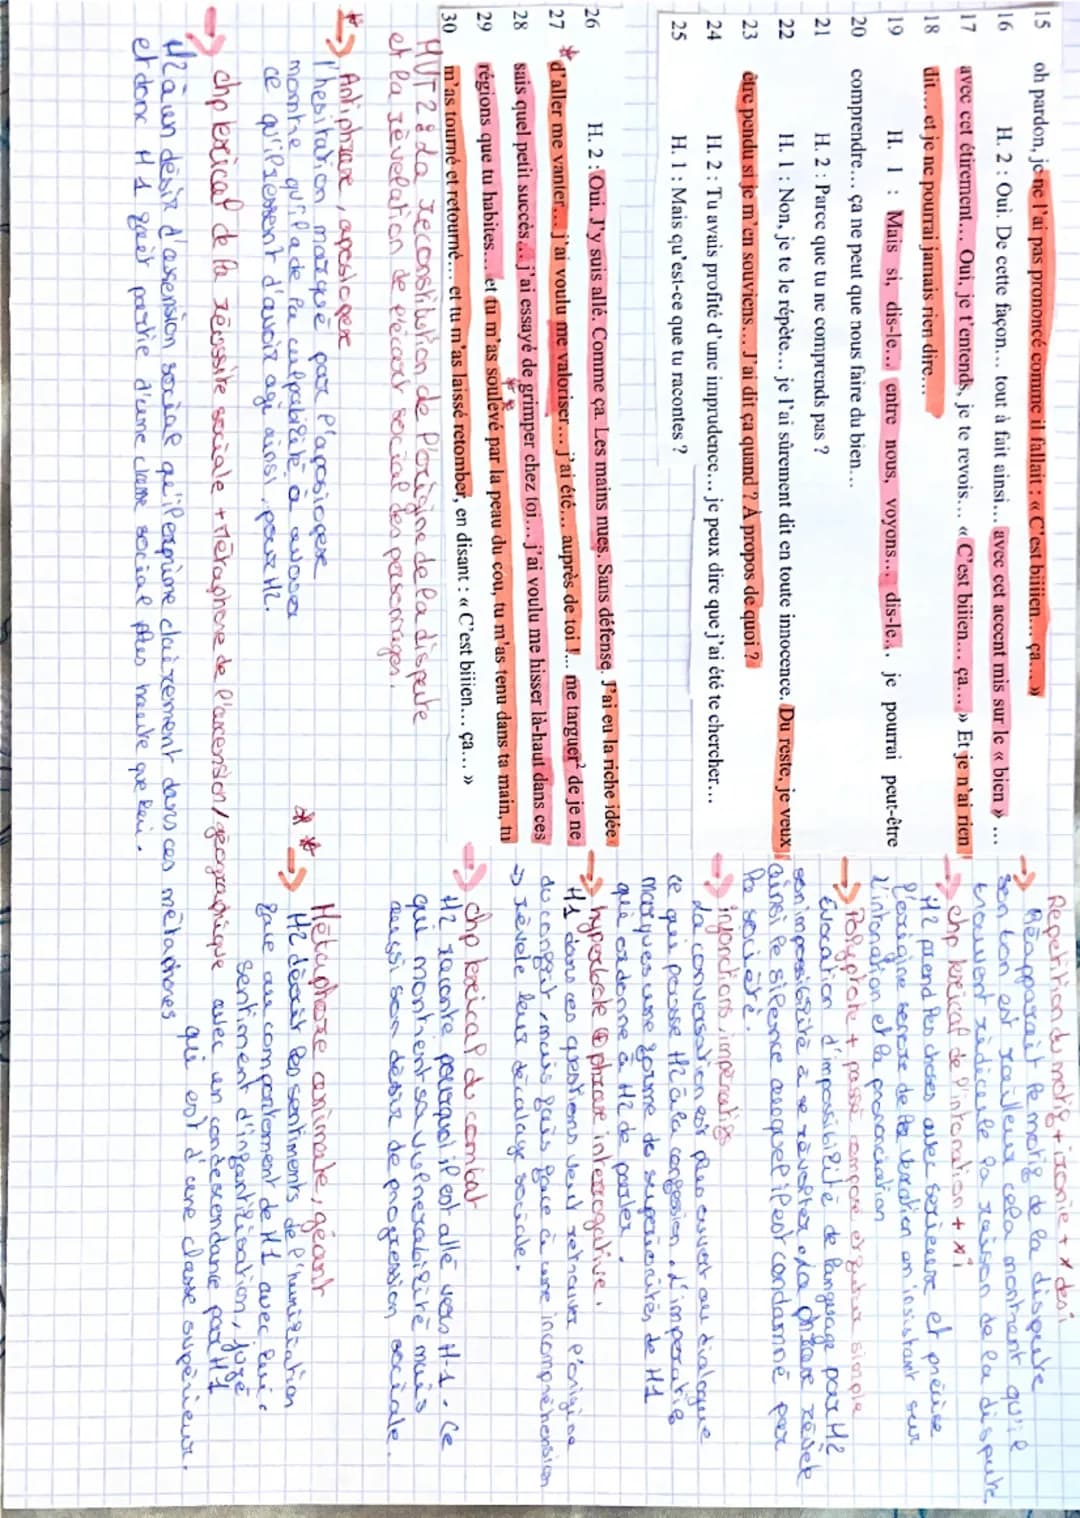 15 oh pardon, je ne l'ai pas prononcé comme il fallait : « C'est biiien... ça... »
16 H. 2 : Oui. De cette façon... tout à fait ainsi... avec cet accent mis sur le « bien » ...
17 avec cet étirement... Oui, je t'entends, je te revois... « C'est biiien... ça... » Et je n'ai rien
18 dit... et je ne pourrai jamais rien dire...
19 H. 1 : Mais si, dis-le... entre nous, voyons... dis-le... je pourrai peut-être
20 comprendre... ça ne peut que nous faire du bien...
21 H. 2 : Parce que tu ne comprends pas ?
22 H. 1 : Non, je te le répète... je l'ai sûrement dit en toute innocence. Du reste, je veux
23 être pendu si je m'en souviens... J'ai dit ça quand ? À propos de quoi ?
24 H. 2 : Tu avais profité d'une imprudence... je peux dire que j'ai été te chercher...
25 H. 1 : Mais qu'est-ce que tu racontes ?
26 H. 2 : Oui. J'y suis allé. Comme ça. Les mains nues. Sans défense. J'ai eu la riche idée
27 * d'aller me vanter... j'ai voulu me valoriser... j'ai été... auprès de toi !... me targuer² de je ne
28 sais quel petit succès... j'ai essayé de grimper chez toi... j'ai voulu me hisser là-haut dans ces
29 régions que tu habites... et tu m'as soulevé par la peau du cou, tu m'as tenu dans ta main, tu
30 m'as tourné et retourné... et tu m'as laissé retomber, en disant : « C'est biiien... ça... »
Repetition du motif + ironie + X de i
→ Réapparait le motif de la dispute
son ton est railleur cela montrent qu'il
trouvent ridicule la raison de la dispute
→ chp lexical de l'intonation + X i
H2 prend les choses avec serieux et précise
l'origine sincère de la vexation en insistant sur
l'intonation et la prononciation
→ Polyptote + passé composé et futur simple
évocation d'impossibilité de language par H2
son impossibilité à se révolter. La phrase révèle
ainsi le silence auquel il est condamné par
la société.
→ injonctions, impératifs
La conversation est plus ouvert au dialogue
ce qui pousse H2 à la confession. L'impératif
marques une forme de supériorités de H1
que ordonne à H2 de parler.
→ hyperbole + phrase interrogative.
H1 dans ces questions veut retrouver l'origine
du conflit, mais fait face à une incompréhension
⇒ révèle leur décalage sociale.
→ chp lexical du combat
H2 raconte pourquoi il est allé vers H-1. Ce
qui montrent sa vulnérabilité mais
aussi son désir de progression sociale.
MVT 2 : La reconstitution de l'origine de la dispute
et la révélation de l'écart social des personnages.
*→ Antiphrase, aposiopèse
l'hésitation marqué par l'aposiopèse
montre qu'il a de la culpabilité à avouer
ce qu'il ressent d'avoir agi ainsi, pour H2.
**→ Métaphore animale, géant
H2 décrit les sentiments de l'humiliation
face au comportement de H1 avec lui :
sentiment d'infantilisation, jugé
avec un condescendance par H1
qui est d'une classe supérieur.
→ chp lexical de la réussite sociale + Métaphore de l'ascension / géographique
H2 à un désir d'ascension social qu'il exprime clairement dans ces métaphores
et donc H1 fait partie d'une classe social plus haute que lui.